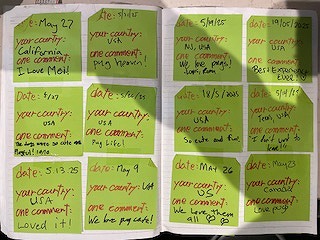 date: May 27
your country:
California
one comment:
I Love Meit!
date: 5/31/25
your country:
USA
one comment:
pug heaven!
Date: 5/27
your country:
USA
one comment:
The dogs were so cute and
Playful! 10/10
date: 5/20/25
your country:
USA
one comment:
Pug Life!
date: 5.13.25
your country:
USA
one comment:
Loved it!
date: May 9
your country: USA
one comment:
We love pug cafe!
date: 5/19/25
your country:
NJ, USA
one comment:
We love pugs!
date: 19/05/2025
your country:
USA
one comment:
Best Experience
Ever!
date: 18/5/2025
your country:
USA
one comment:
So cute and fun!
date:
your country:
Texas, USA
one comment:
I don't want to
leave!!
date: MAY 26
your country:
US
one comment:
We Love them
all
date: May 23
your country:
Canada
one comment:
Love pugs